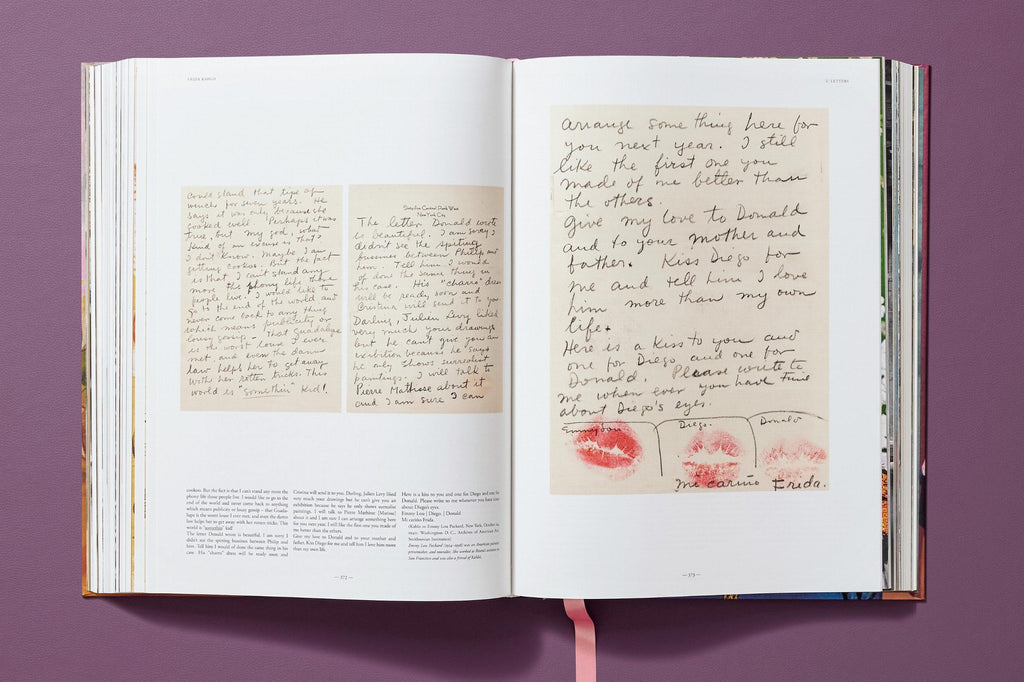 FRIDA KAHLO
could stand that type of
wench for seven years. He
says it was only because she
cooked well. Perhaps it was
true, but my god, what
kind of an excuse is that?
I don't know. Maybe I am
getting cookoo. But the fact
is that I can't stand any
more the phony life those
people live. I would like to
go to the end of the world and
never come back to any thing
which means publicity or
lousy gossip - That Guadalupe
is the worst louse I ever
met, and even the damn
law helps her to get away
with her rotten tricks. This
world is "somethin" Kid!
Sixty-five Central Park West
New York City
The letter Donald wrote
is beautiful. I am sorry I
didn't see the spiting
bussines between Philip and
him. Tell him I would
of done the same thing in
his case. His "charro" dress
will be ready soon and
Cristina will send it to you
Darling, Julien Levy liked
very much your drawings
but he can't give you an
exibition because he says
he only shows surrealist
paintings. I will talk to
Pierre Mathisse about it
and I am sure I can
cookoo. But the fact is that I can't stand any more the
phony life those people live. I would like to go to the
end of the world and never come back to anything
which means publicity or lousy gossip - that Guada-
lupe is the worst louse I ever met, and even the damn
law helps her to get away with her rotten tricks. This
world is "somethin" kid!
The letter Donald wrote is beautiful. I am sorry I
didn't see the spiting bussines between Philip and
him. Tell him I would of done the same thing in his
case. His "charro" dress will be ready soon and
Cristina will send it to you. Darling, Julien Levy liked
very much your drawings but he can't give you an
exibition because he says he only shows surrealist
paintings. I will talk to Pierre Mathisse [Matisse]
about it and I am sure I can arrange something here
for you next year. I still like the first one you made of
me better than the others.
Give my love to Donald and to your mother and
father. Kiss Diego for me and tell him I love him more
than my own life.
Here is a kiss to you and one for Diego and one for
Donald. Please write to me whenever you have time
about Diego's eyes.
Emmy Lou | Diego | Donald
Mi cariño Frida.
(Kahlo to Emmy Lou Packard, New York, October 24,
1940. Washington D. C., Archives of American Art,
Smithsonian Institution)
— 372 —
2 LETTERS
arrange some thing here for
you next year. I still
like the first one you
made of me better than
the others.
Give my love to Donald
and to your mother and
father. Kiss Diego for
me and tell him I love
him more than my own
life.
Here is a kiss to you and
one for Diego and one for
Donald. Please write to
me when ever you have time
about Diego's eyes.
Emmylou Diego. Donald
Mi cariño Frida.
— 373 —